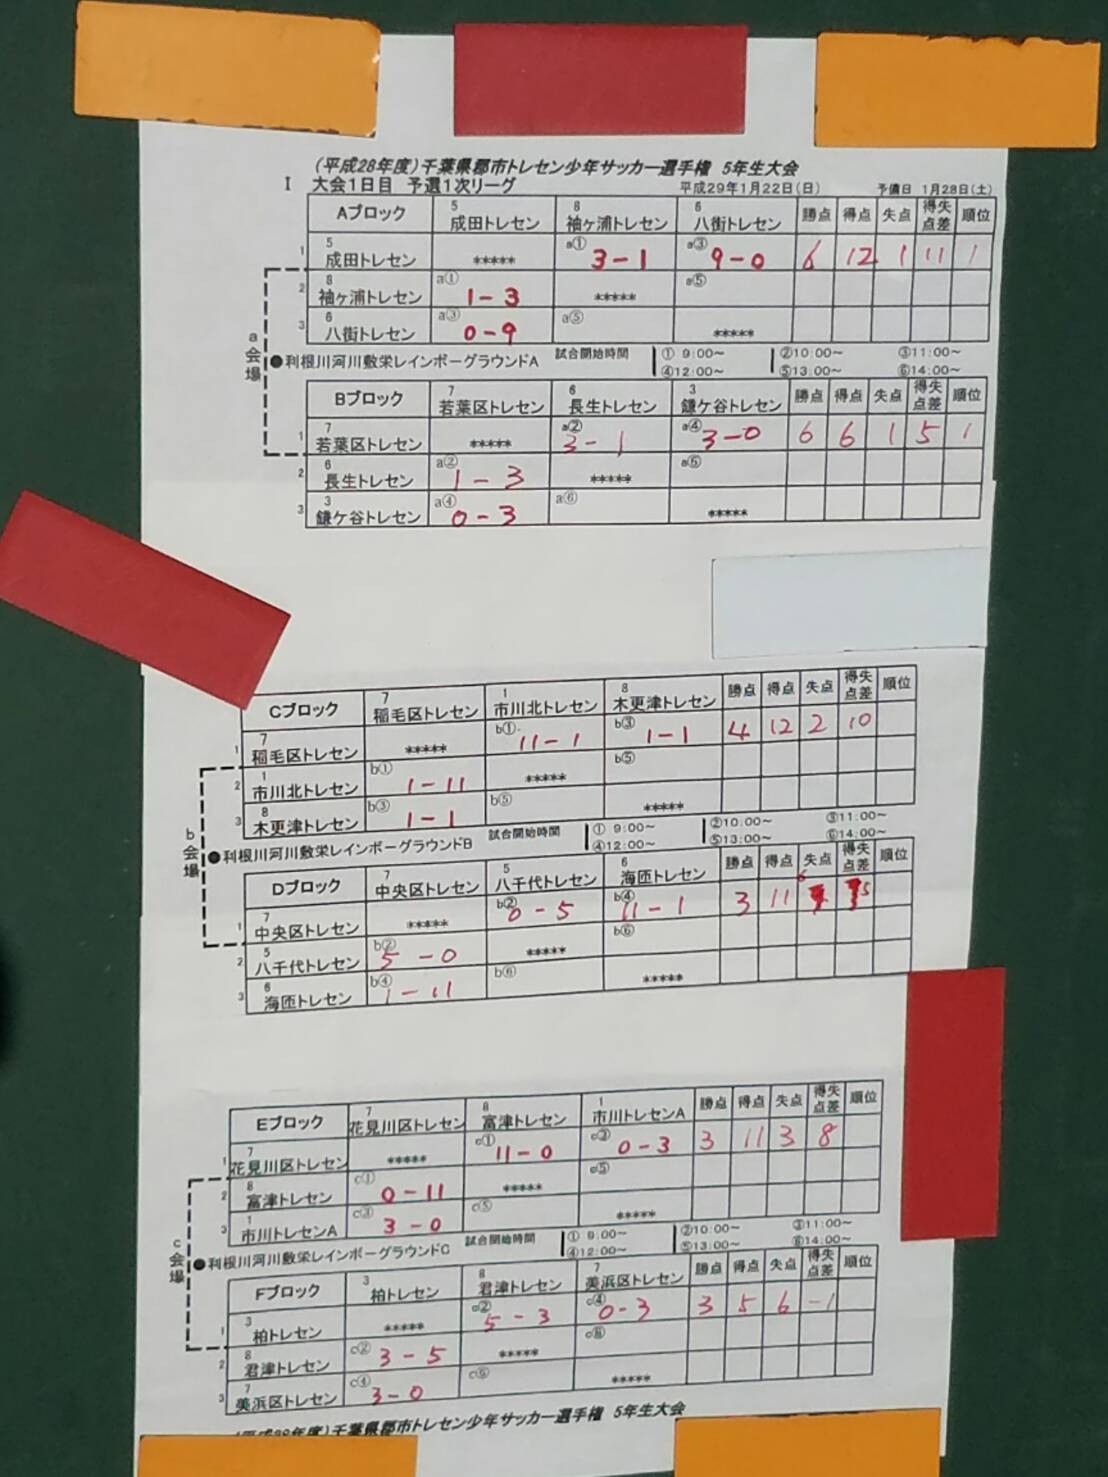 (平成28年度)千葉県郡市トレセン少年サッカー選手権 5年生大会
I 大会1日目 予選1次リーグ 平成29年1月22日(日) 予備日 1月28日(土)
Aブロック 5 成田トレセン 8 袖ヶ浦トレセン 6 八街トレセン 勝点 得点 失点 得失点差 順位
1 5 成田トレセン ***** a① 3-1 a③ 9-0 6 12 1 11 1
2 8 袖ヶ浦トレセン a① 1-3 ***** a⑤
3 6 八街トレセン a③ 0-9 a⑤ *****
a会場 ●利根川河川敷栄レインボーグラウンドA 試合開始時間 ① 9:00~ ②10:00~ ③11:00~
④12:00~ ⑤13:00~ ⑥14:00~
Bブロック 7 若葉区トレセン 6 長生トレセン 3 鎌ケ谷トレセン 勝点 得点 失点 得失点差 順位
1 7 若葉区トレセン ***** a② 3-1 a④ 3-0 6 6 1 5 1
2 6 長生トレセン a② 1-3 ***** a⑥
3 3 鎌ケ谷トレセン a④ 0-3 a⑥ *****
Cブロック 7 稲毛区トレセン 1 市川北トレセン 8 木更津トレセン 勝点 得点 失点 得失点差 順位
1 7 稲毛区トレセン ***** b① 11-1 b③ 1-1 4 12 2 10
2 1 市川北トレセン b① 1-11 ***** b⑤
3 8 木更津トレセン b③ 1-1 b⑤ *****
b会場 ●利根川河川敷栄レインボーグラウンドB 試合開始時間 ① 9:00~ ②10:00~ ③11:00~
④12:00~ ⑤13:00~ ⑥14:00~
Dブロック 7 中央区トレセン 5 八千代トレセン 6 海匝トレセン 勝点 得点 失点 得失点差 順位
1 7 中央区トレセン ***** b② 0-5 b④ 11-1 3 11 6 5
2 5 八千代トレセン b② 5-0 ***** b⑥
3 6 海匝トレセン b④ 1-11 b⑥ *****
Eブロック 7 花見川区トレセン 8 富津トレセン 1 市川トレセンA 勝点 得点 失点 得失点差 順位
1 7 花見川区トレセン ***** c① 11-0 c③ 0-3 3 11 3 8
2 8 富津トレセン c① 0-11 ***** c⑤
3 1 市川トレセンA c③ 3-0 c⑤ *****
c会場 ●利根川河川敷栄レインボーグラウンドC 試合開始時間 ① 9:00~ ②10:00~ ③11:00~
④12:00~ ⑤13:00~ ⑥14:00~
Fブロック 3 柏トレセン 8 君津トレセン 7 美浜区トレセン 勝点 得点 失点 得失点差 順位
1 3 柏トレセン ***** c② 5-3 c④ 0-3 3 5 6 -1
2 8 君津トレセン c② 3-5 ***** c⑥
3 7 美浜区トレセン c④ 3-0 c⑥ *****
(平成28年度)千葉県郡市トレセン少年サッカー選手権 5年生大会